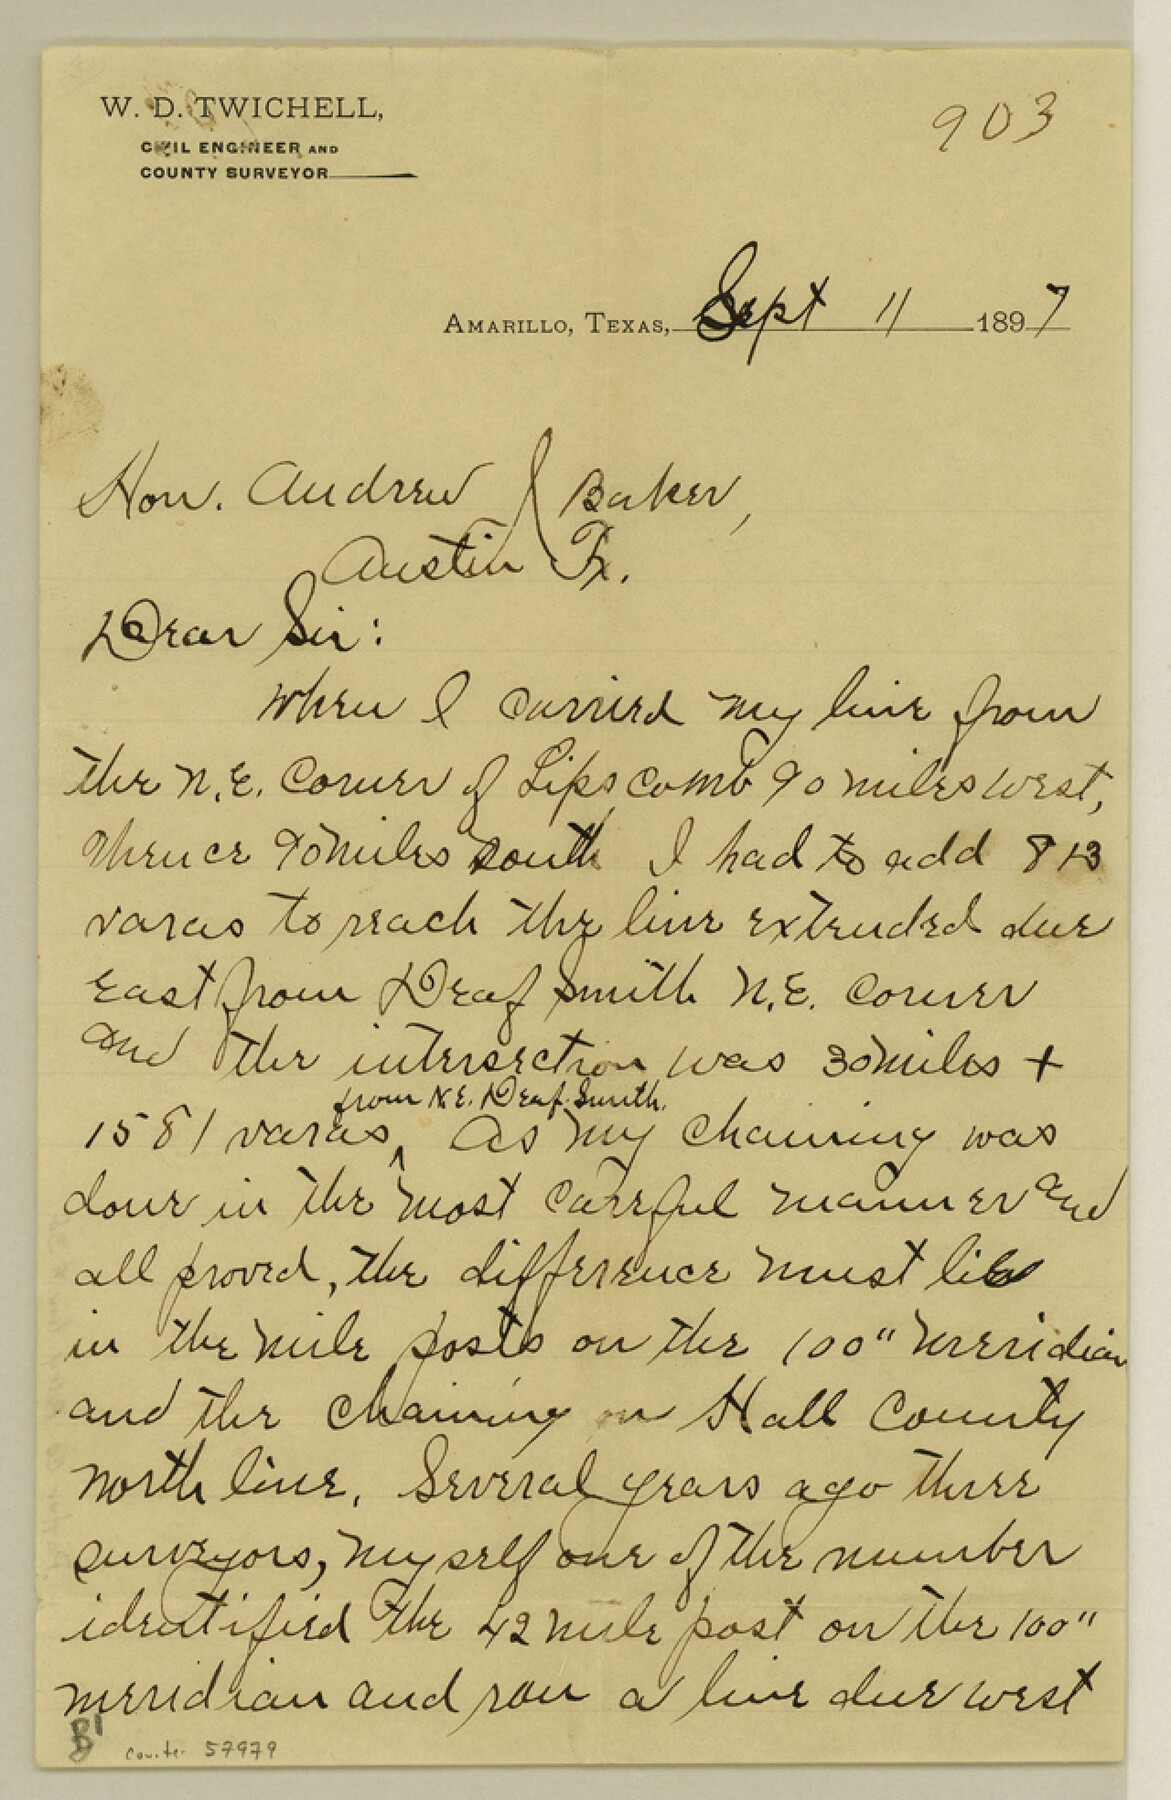 W. D. TWICHELL,
CIVIL ENGINEER AND
COUNTY SURVEYOR
903
AMARILLO, TEXAS, Sept 11 1897
Hon. Andrew J Baker,
Austin Tx.
Dear Sir:
When I carried my line from
the N.E. Corner of Lipscomb 90 miles west,
thence 90 miles south I had to add 813
varas to reach the line extended due
east from Deaf Smith N.E. Corner
and the intersection was 30 miles +
from N.E. Deaf Smith.
1581 varas ^ As my chaining was
done in the most careful manner and
all proved, the difference must lie
in the mile posts on the 100" meridian
and the chaining on Hall County
north line. Several years ago three
surveyors, myself one of the number
identified the 42 mile post on the 100"
meridian and ran a line due west
B1
Counter 57979